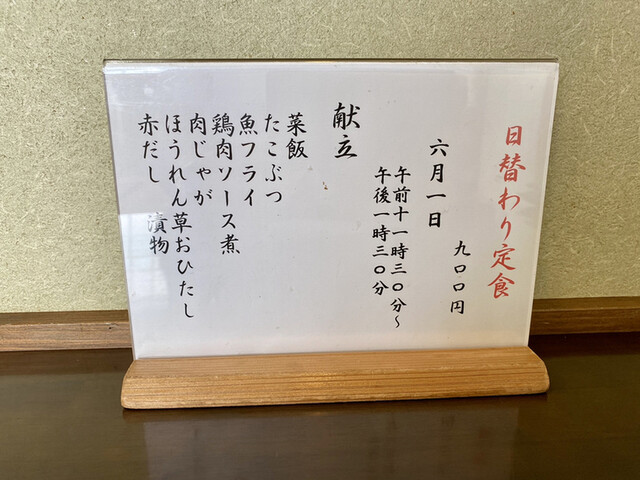 日替わり定食
九〇〇円
六月一日
午前十一時三〇分～
午後一時三〇分
献立
菜飯
たこぶつ
魚フライ
鶏肉ソース煮
肉じゃが
ほうれん草おひたし
赤だし　漬物